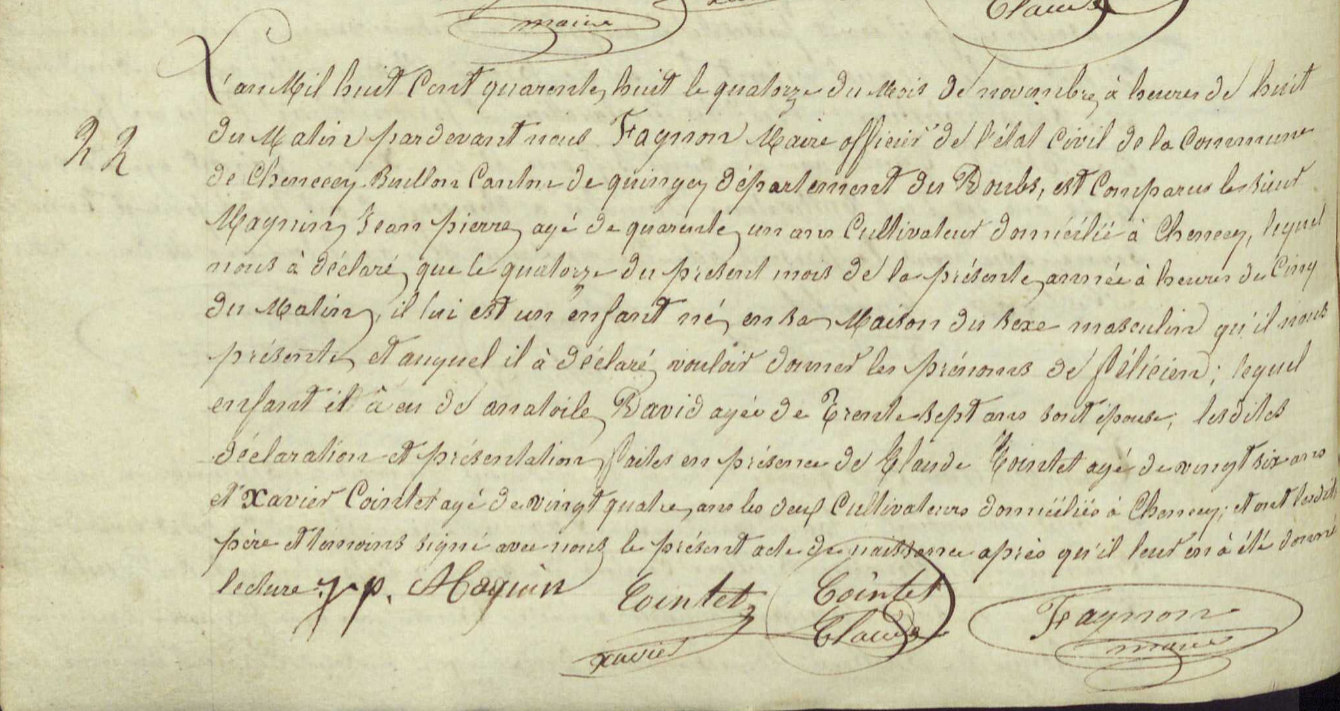 maire
Claude
L'an Mil huit Cent quarente huit le quatorze du Mois de novembre à heures de huit
22
du Matin pardevant nous Fagnon Maire officier de l'état Civil de la Commune
de Chenecey Buillon Canton de quingey département du Doubs, est Comparu le sieur
Magnin Jean pierre, agé de quarente un ans Cultivateur domicilié à Chenecey, lequel
nous à déclaré, que le quatorze du présent mois de la présente année à heures de Cinq
du Matin, il lui est un enfant né, en sa Maison du sexe masculin qu'il nous
présente, et auquel il à déclaré vouloir donner les prénoms de félicien; lequel
enfant il à eu de anatoile David agée de Trente sept ans sont épouse; lesdites
déclaration et présentation faites en présence de Claude Cointet agé de vingt six ans
et Xavier Cointet agé de vingt quatre, ans les deux Cultivateurs domiciliés à Chenecey; et ont lesdits
père et temoins signé avec nous le présent acte de naissance après qu'il leur en à été donné
lecture. J. p. Magnin
Cointet Xavier
Cointet Claude
Fagnon maire